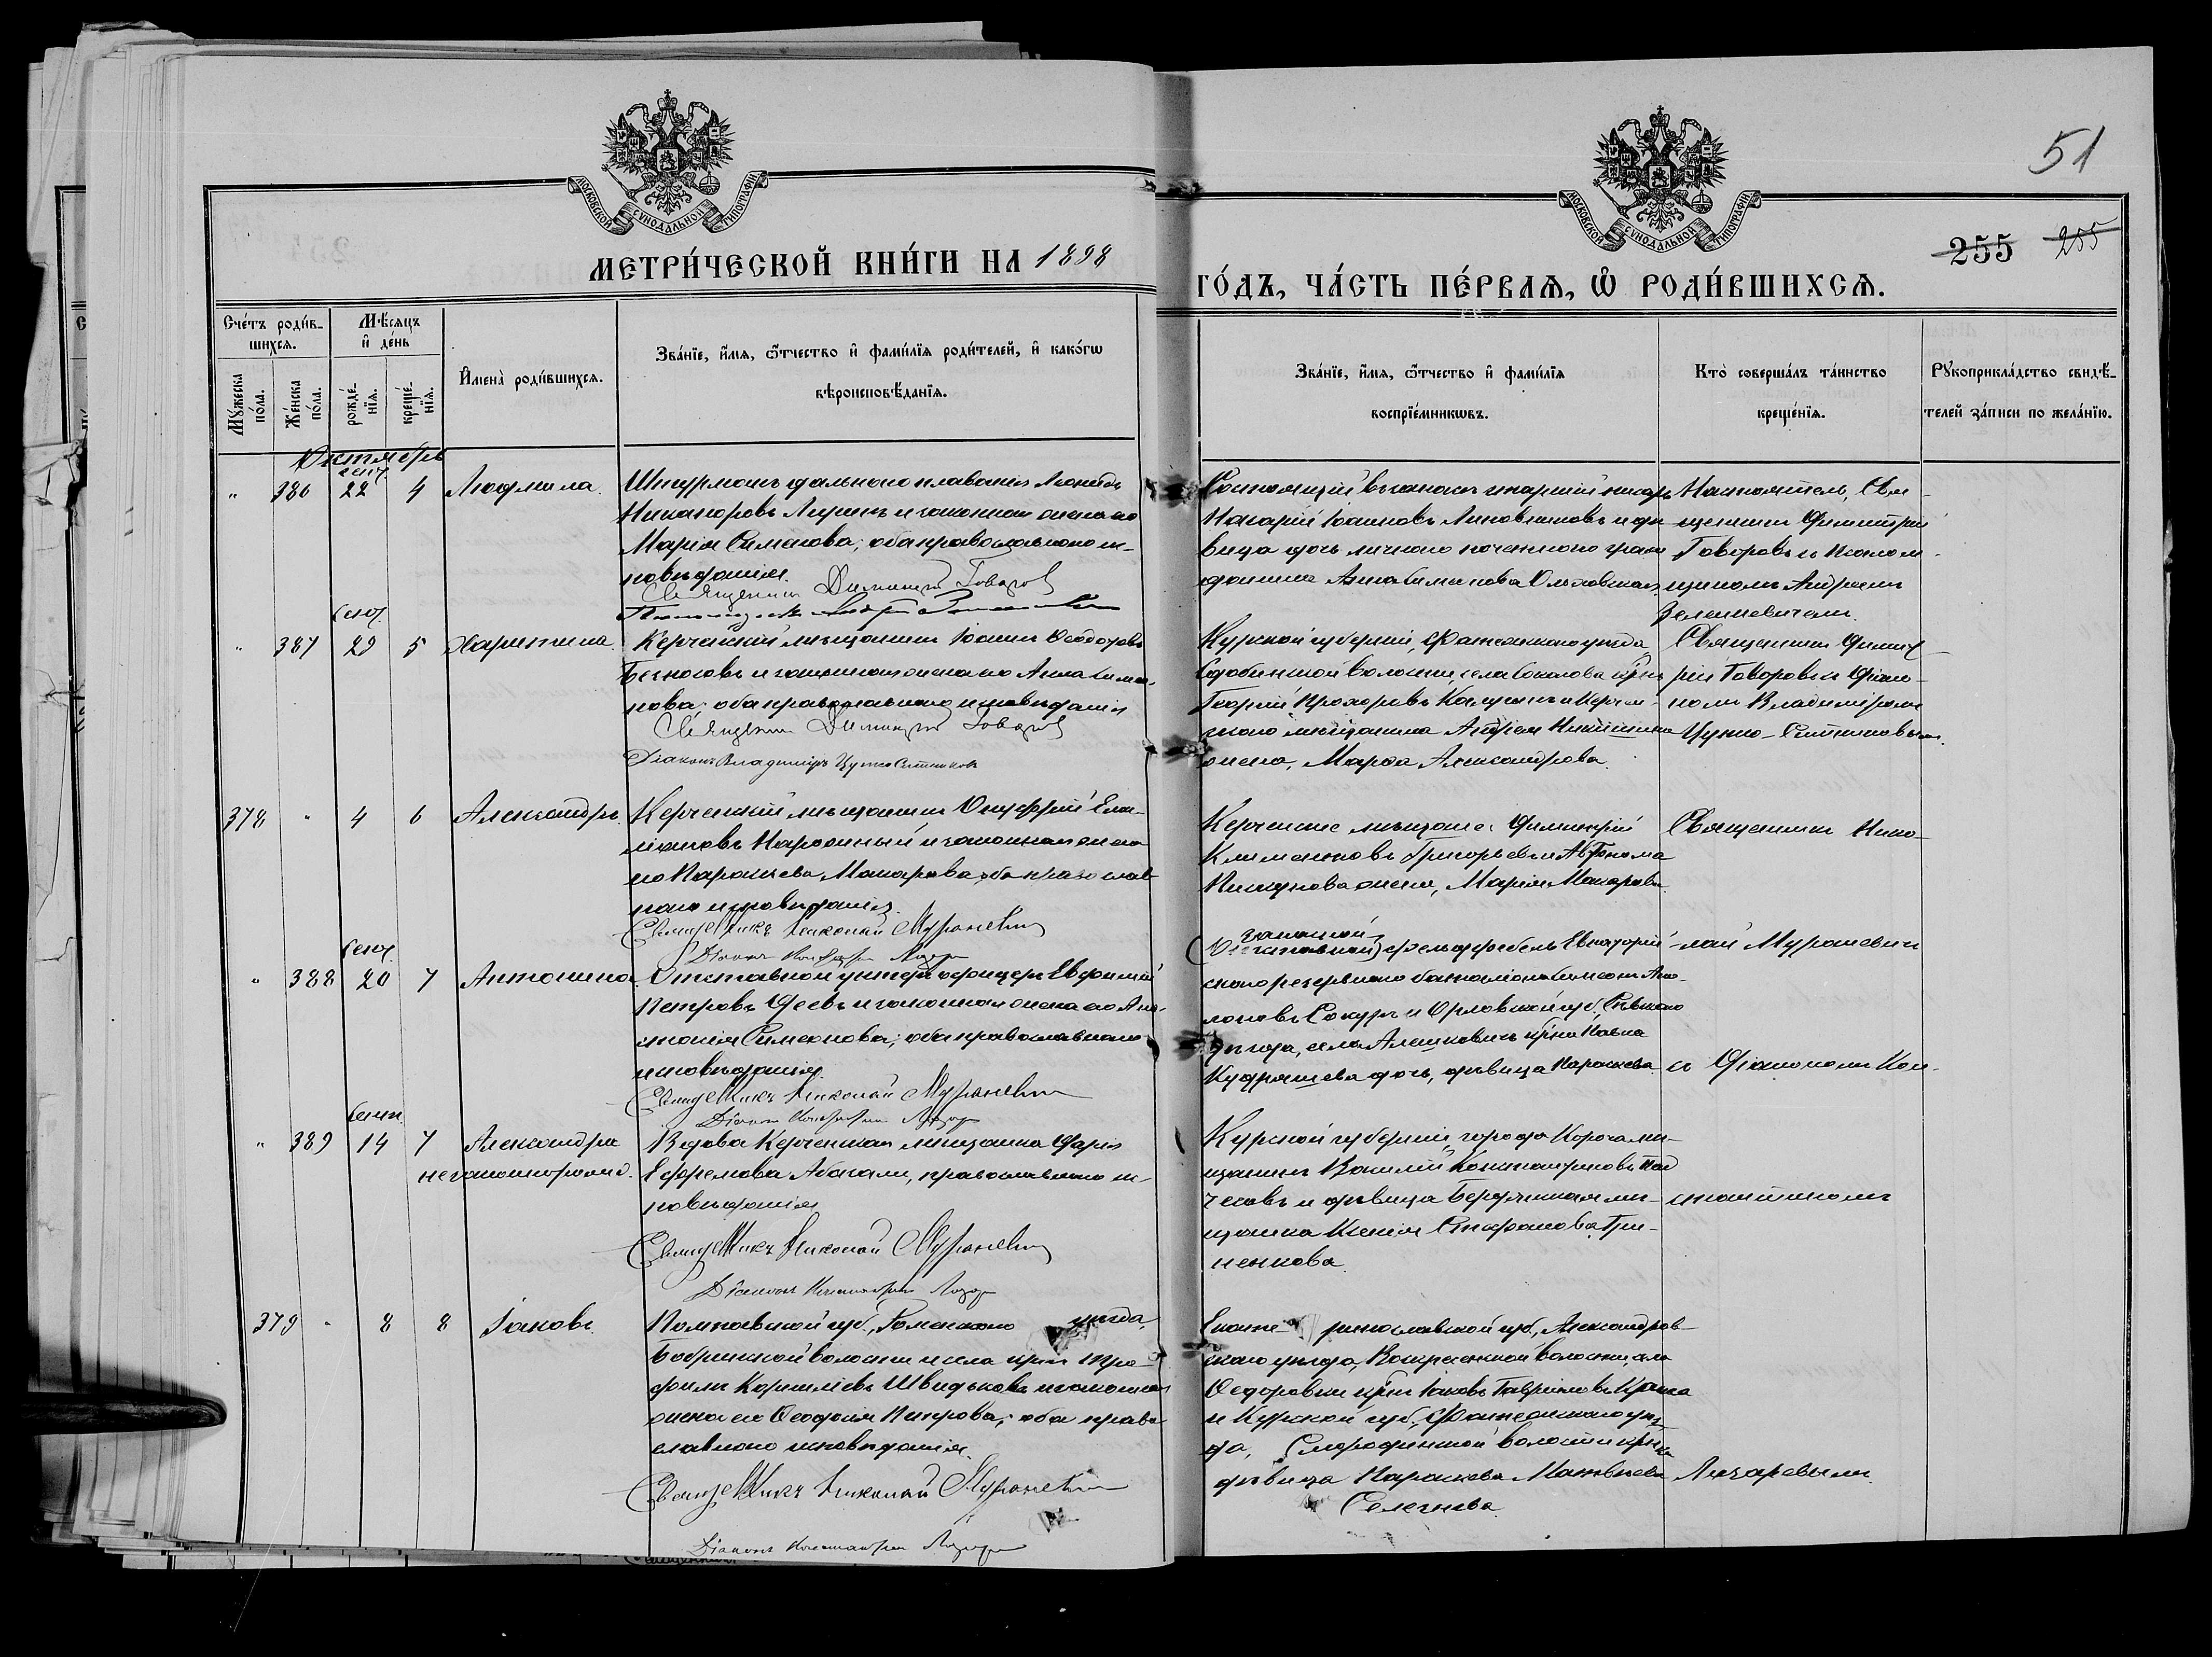 МОСКОВСКОЙ СУНОДАЛЬНОЙ ТИПОГРАФІИ
МОСКОВСКОЙ СУНОДАЛЬНОЙ ТИПОГРАФІИ
51
255 255
МЕТРИ́ЧЕСКОЙ КНИ́ГИ НА 1898
ГО́ДЪ, ЧА́СТЬ ПЕ́РВАѦ, Ѽ РОДИ́ВШИХСѦ.
Сче́тъ роди́в-
шихсѧ.
Мѣ́сѧцъ
и҆ де́нь
Мꙋ́жеска
по́ла.
Же́нска
по́ла.
рожде́-
нїѧ.
креще́-
нїѧ.
И҆мена̀ роди́вшихсѧ.
Зва́нїе, и҆́мѧ, ѻ҆́тчество и҆ фами́лїѧ роди́телей, и҆ како́гѡ
вѣроисповѣ́данїѧ.
Зва́нїе, и҆́мѧ, ѻ҆́тчество и҆ фами́лїѧ
воспрїе́мникѡвъ.
Кто̀ соверша́лъ та́инство
креще́нїѧ.
Рꙋкоприкла́дство свидѣ́-
телей за́писи по жела́нїю.
Октябрь
сент.
" 386 22 4 Людмила.
Штурманъ дальняго плаванія Леонидъ
Никаноровъ и законная жена его
Марія Симеонова; оба православнаго ис-
повѣданія.
Священникъ Димитрій Говоровъ
Состоящій въ запасѣ старшій писарь
Назарій Іоанновъ и дѣ-
вица дочь личнаго почетнаго граж-
данина Анна Симонова Ольховская
Настоятель, Свя-
щенникъ Димитрій
Говоровъ съ псалом-
щикомъ Андреемъ
Зеленкевичемъ.
Сент.
" 387 29 5 Харитина.
Керченскій мѣщанинъ Іоаннъ Ѳеодотовъ
Безносовъ и законная жена его Анна Симе-
нова; оба православнаго исповѣданія
Священникъ Димитрій Говоровъ
Діаконъ Владиміръ Цупко-Ситниковъ
Курской губерніи, Фатежскаго уѣзда,
волости, села Соколовка кр-нъ
Георгій Прохоровъ и Керчен-
скаго мѣщанина Андрея
жена, Марѳа Александрова.
Священникъ Димит-
рій Говоровъ съ Діако-
номъ Владиміромъ
Цупко-Ситниковымъ.
378 " 4 6 Александръ.
Керченскій мѣщанинъ Онуфрій Еми-
ліановъ и законная жена
его Параскева Макарова, оба православ-
наго исповѣданія.
Священникъ Николай Мураневичъ
Діаконъ Константинъ Лазаревъ
Керченскіе мѣщане: Димитрій
Климентовъ Григорьевъ и Автонома
жена, Марія Макарова.
Священникъ Нико-
Сент.
" 388 20 7 Антонина
Отставной унтеръ-офицеръ Евфимій
Петровъ и законная жена его Ан-
тонія Симеонова; оба православнаго
исповѣданія.
Священникъ Николай Мураневичъ
Діаконъ Константинъ Лазаревъ
запасной
(Отставной) фельдфебель Евпаторій-
скаго резервнаго баталіона Симеонъ
и Орловской губ., Сѣвскаго
уѣзда, села Алешковичъ кр-на Павла
Кудряшева дочь, дѣвица Параскева
лай Мураневичъ
съ Діакономъ Кон-
Сент.
" 389 14 7 Александра
незаконнорожд.
Вдова Керченская мѣщанка Дарія
Ефремова, православнаго ис-
повѣданія
Священникъ Николай Мураневичъ
Діаконъ Константинъ Лазаревъ
Курской губерніи, города Корочи мѣ-
щанинъ Василій Константиновъ
и дѣвица Бердянская мѣ-
щанка Ксенія Стефанова Гри-
ненкова.
стантиномъ
379 " 8 8 Іаковъ.
Полтавской губ., Роменскаго уѣзда,
Бобрикской волости и села кр-нъ Тро-
фимъ Корниліевъ Швидковъ и законная
жена его Ѳеодосія Петрова; оба право-
славнаго исповѣданія.
Священникъ Николай Мураневичъ
Діаконъ Константинъ Лазаревъ
Екате-ринославской губ., Александров-
скаго уѣзда, Воскресенской волости, села
Ѳедоровки кр-нъ Іаковъ Гавріиловъ
и Курской губ., Фатежскаго уѣз-
да, Смородинской волости кр-ка
дѣвица Параскева Матвѣева
Селезнева.
Лазаревымъ.